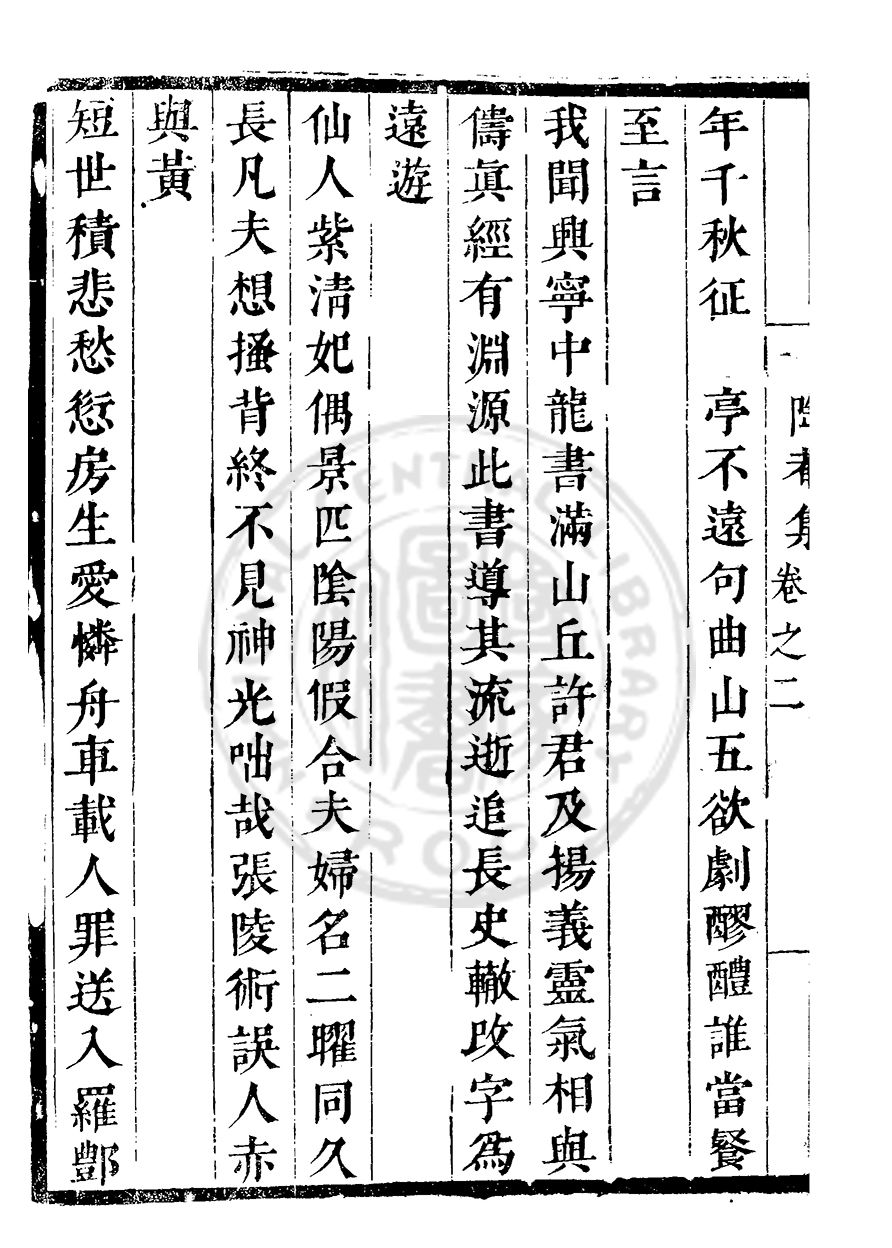 集卷之二
年千秋征　亭不遠句曲山五欲劇醪醴誰當餐
至言
我聞興寧中龍書滿山丘許君及揚義靈氣相與
儔眞經有淵源此書導其流逝追長史轍改字爲
遠遊
仙人紫清妃偶景匹隂陽假合夫婦名二曜同久
長凡夫想搔背終不見神光咄哉張陵術誤人赤
與黃
短世積悲愁愆房生愛憐舟車載人罪送入羅酆
CENTRAL LIBRARY
圖書